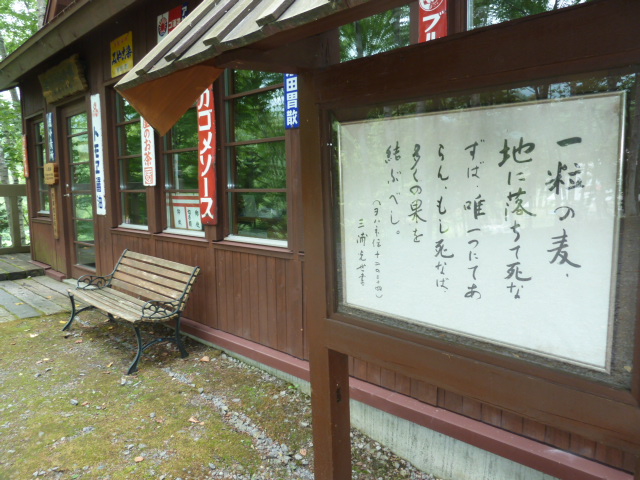 一粒の麦、
地に落ちて死な
ずば、唯一つにてあ
らん、もし死なば、
多くの果を
結ぶべし。
(ヨハネ伝十二ノ二四)
三浦光世書
ブル
田胃散
カゴメソース
のお茶
トモヱ